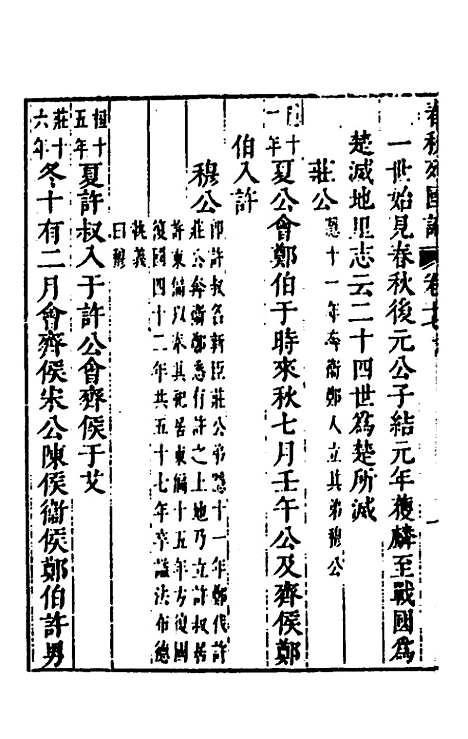 春秋列國 卷
一世始見春秋後元公子結元年獲麟至戰國爲
楚滅地里志云二十四世爲楚所滅
莊公 隱十一年奔衛鄭人立其弟穆公
隱十一年 夏公會鄭伯于時來秋七月壬午公及齊侯鄭
伯入許
穆公 即許叔名新臣莊公弟隱十一年鄭伐許
莊公奔衛鄭悉有許之土地乃立許叔居
許東偏以奉其祀居東偏十五年方復國
復國四十二年共五十七年卒諡法布德
執義
曰穆
桓十五年 夏許叔入于許公會齊侯于艾
莊十六年 冬十有二月會齊侯宋公陳侯衞侯鄭伯許男